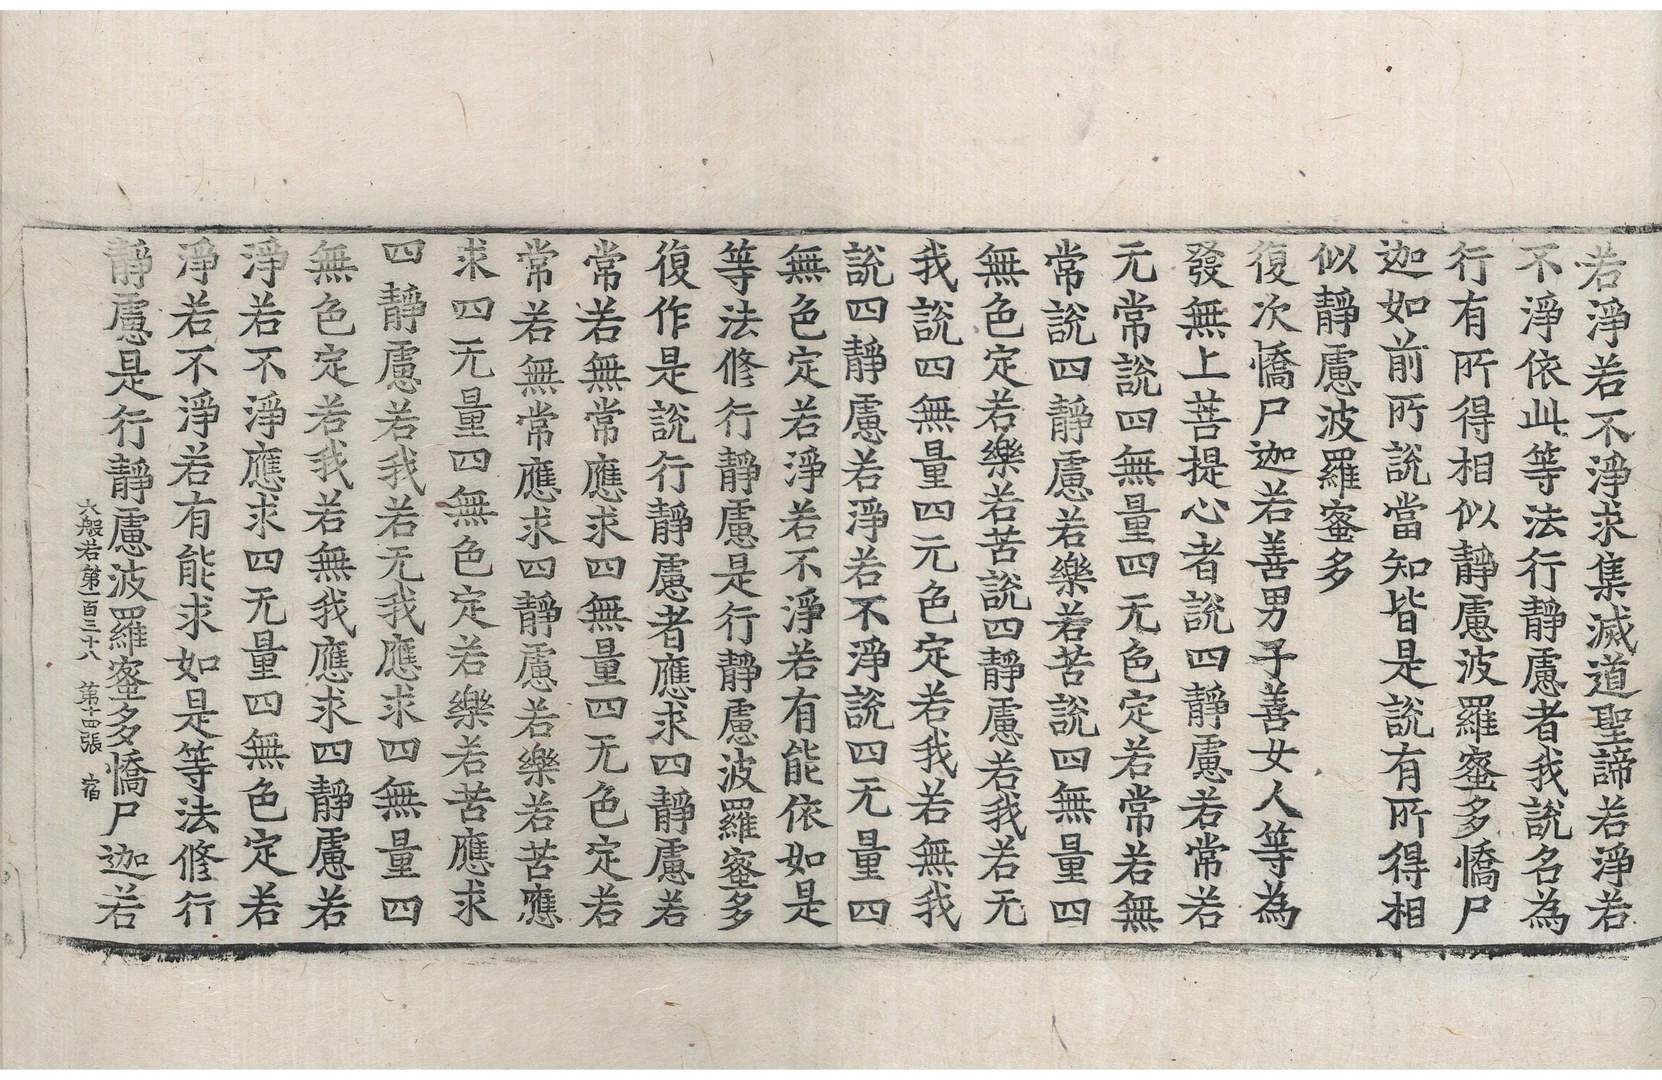 若淨若不淨求集滅道聖諦若淨若
不淨依此等法行靜慮者我說名為
行有所得相似靜慮波羅蜜多憍尸
迦如前所說當知皆是說有所得相
似靜慮波羅蜜多
復次憍尸迦若善男子善女人等為
發無上菩提心者說四靜慮若常若
无常說四無量四无色定若常若無
常說四靜慮若樂若苦說四無量四
無色定若樂若苦說四靜慮若我若无
我說四無量四无色定若我若無我
說四靜慮若淨若不淨說四无量四
無色定若淨若不淨若有能依如是
等法修行靜慮是行靜慮波羅蜜多
復作是說行靜慮者應求四靜慮若
常若無常應求四無量四无色定若
常若無常應求四靜慮若樂若苦應
求四无量四無色定若樂若苦應求
四靜慮若我若无我應求四無量四
無色定若我若無我應求四靜慮若
淨若不淨應求四无量四無色定若
淨若不淨若有能求如是等法修行
靜慮是行靜慮波羅蜜多憍尸迦若
大般若第一百三十八 第十四張 宿